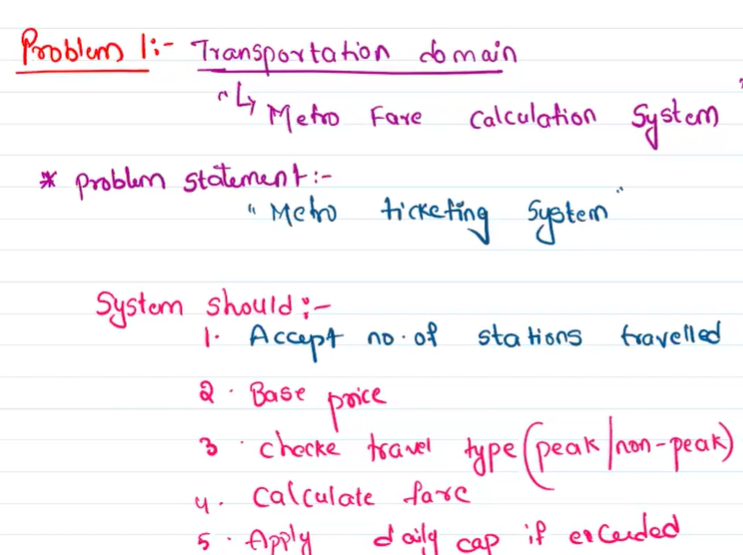 Problem 1:- Transportation domain
"↳ Metro Fare Calculation System "
* Problem statement:-
"Metro ticketing system"
System should:-
1. Accept no. of stations travelled
2. Base price
3. Checke travel type (peak/non-peak)
4. Calculate fare
5. Apply daily cap if exceeded